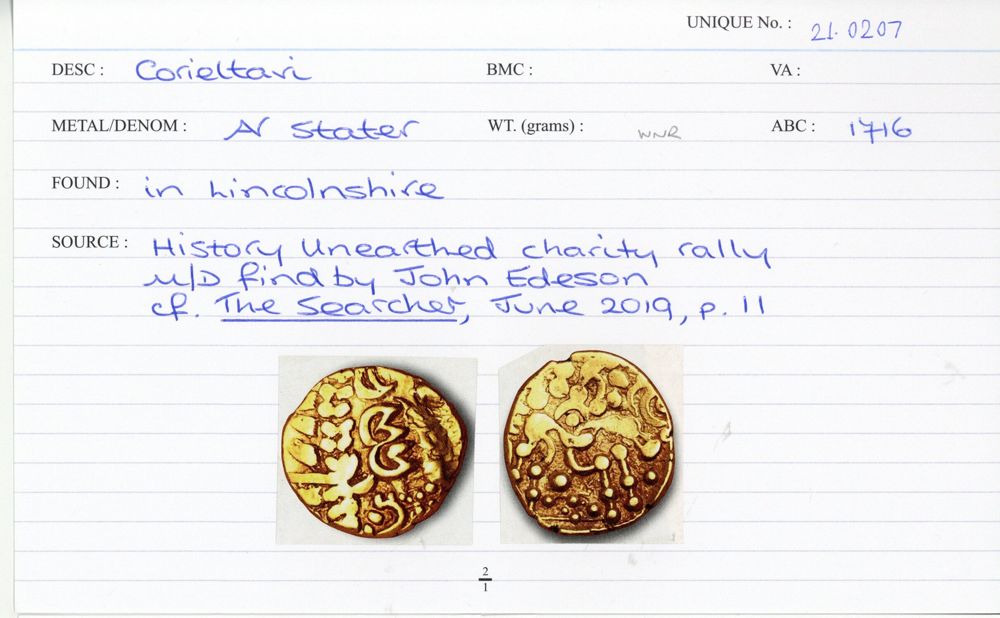 UNIQUE No. : 21.0207
DESC : Corieltavi BMC : VA :
METAL/DENOM : AV Stater WT. (grams) : WNR ABC : 1716
FOUND : in Lincolnshire
SOURCE : History Unearthed charity rally
M/D find by John Edeson
cf. The Searcher, June 2019, p. 11
2
1